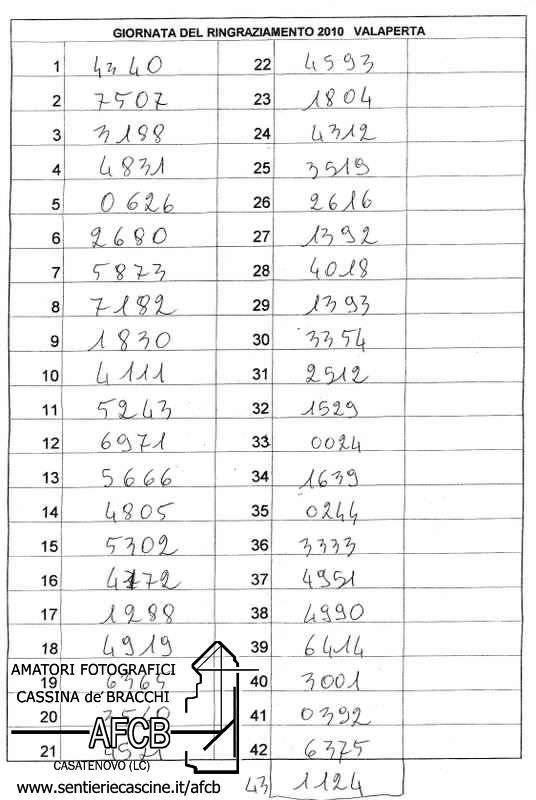 GIORNATA DEL RINGRAZIAMENTO 2010 VALAPERTA
1 4340 22 4593
2 7507 23 1804
3 3188 24 4312
4 4831 25 3519
5 0626 26 2616
6 2680 27 1392
7 5873 28 4018
8 7182 29 1393
9 1830 30 3354
10 4111 31 2512
11 5243 32 1529
12 6971 33 0024
13 5666 34 1639
14 4805 35 0244
15 5302 36 3333
16 4172 37 4951
17 1288 38 4990
18 4919 39 6414
AMATORI FOTOGRAFICI
19 6365 40 3001
CASSINA de' BRACCHI
20 41 0392
AFCB
21 42 6375
CASATENOVO (LC)
www.sentieriecascine.it/afcb 43 1124